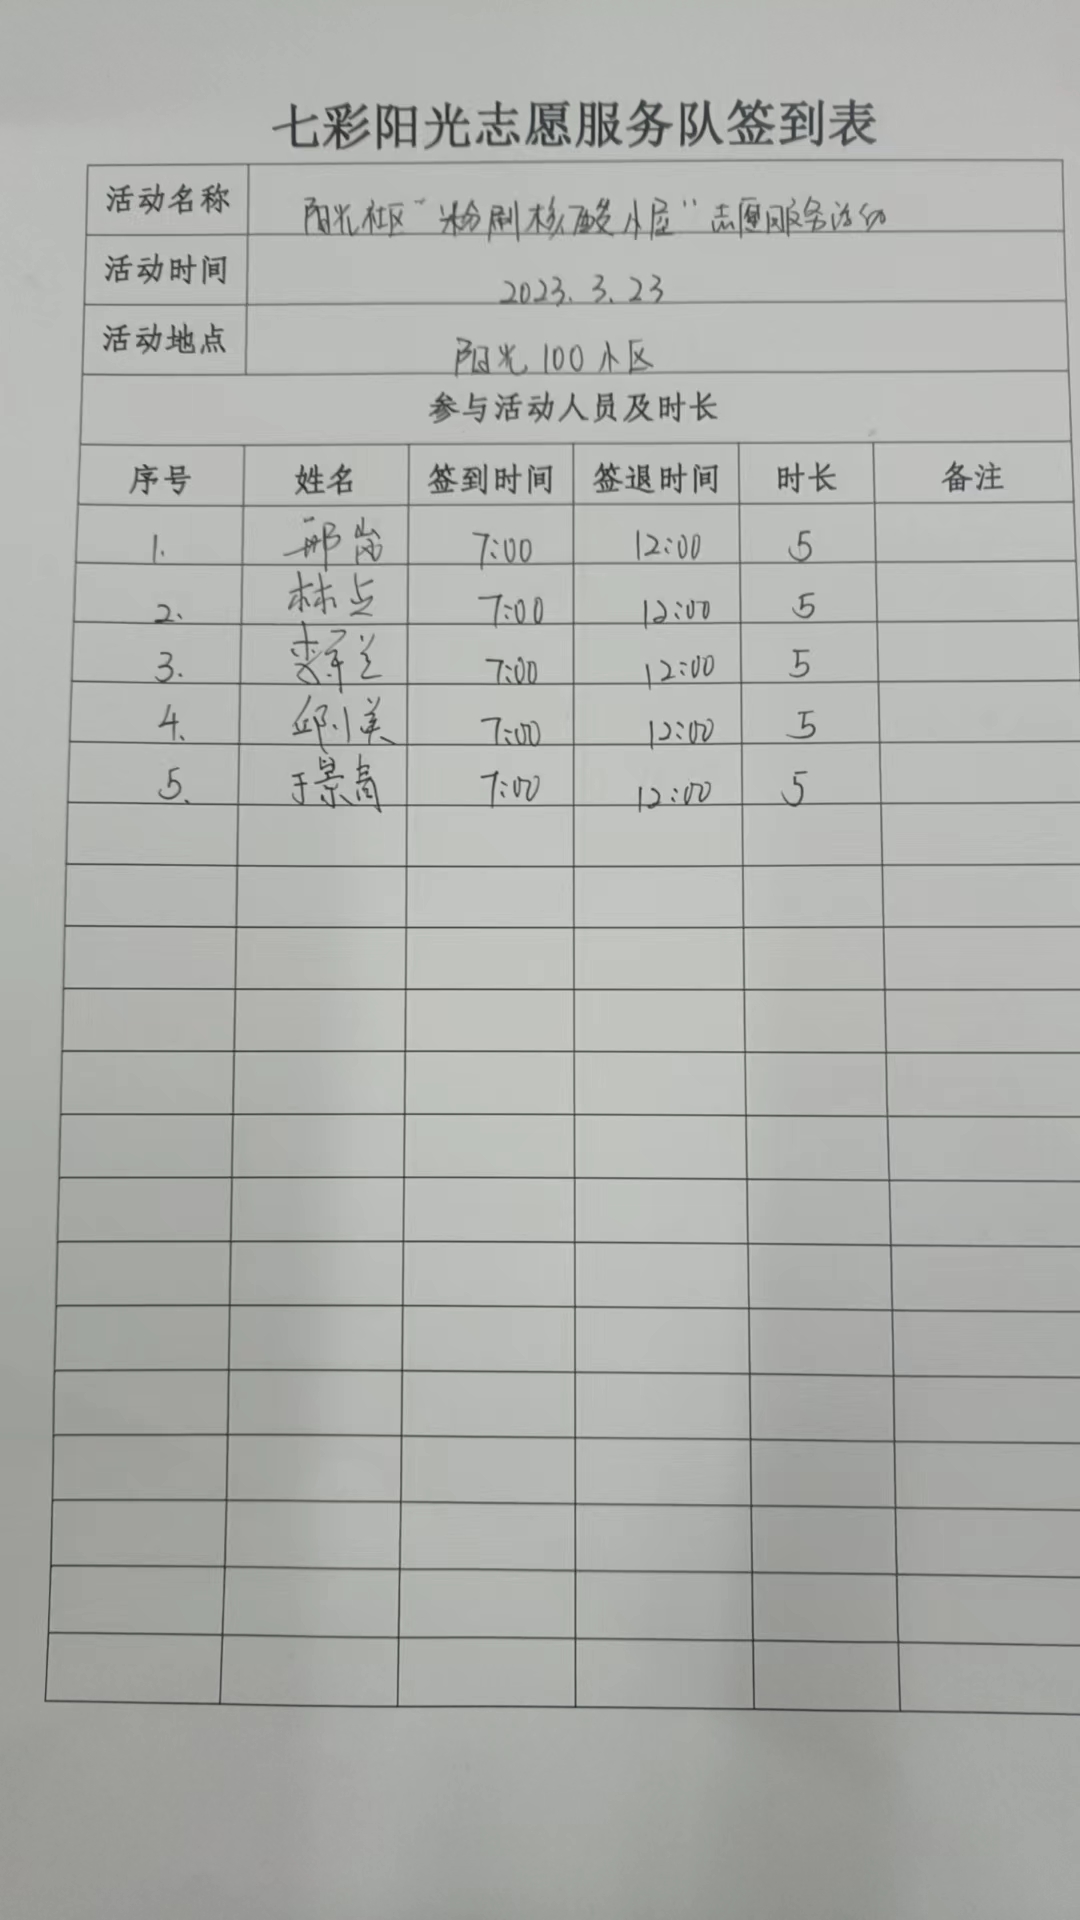 七彩阳光志愿服务队签到表
活动名称 阳光社区“粉刷核酸小屋”志愿服务活动
活动时间 2023.3.23
活动地点 阳光100小区
参与活动人员及时长
序号 姓名 签到时间 签退时间 时长 备注
1. 邢岗 7:00 12:00 5
2. 林点 7:00 12:00 5
3. 李军兰 7:00 12:00 5
4. 邱小美 7:00 12:00 5
5. 于景高 7:00 12:00 5